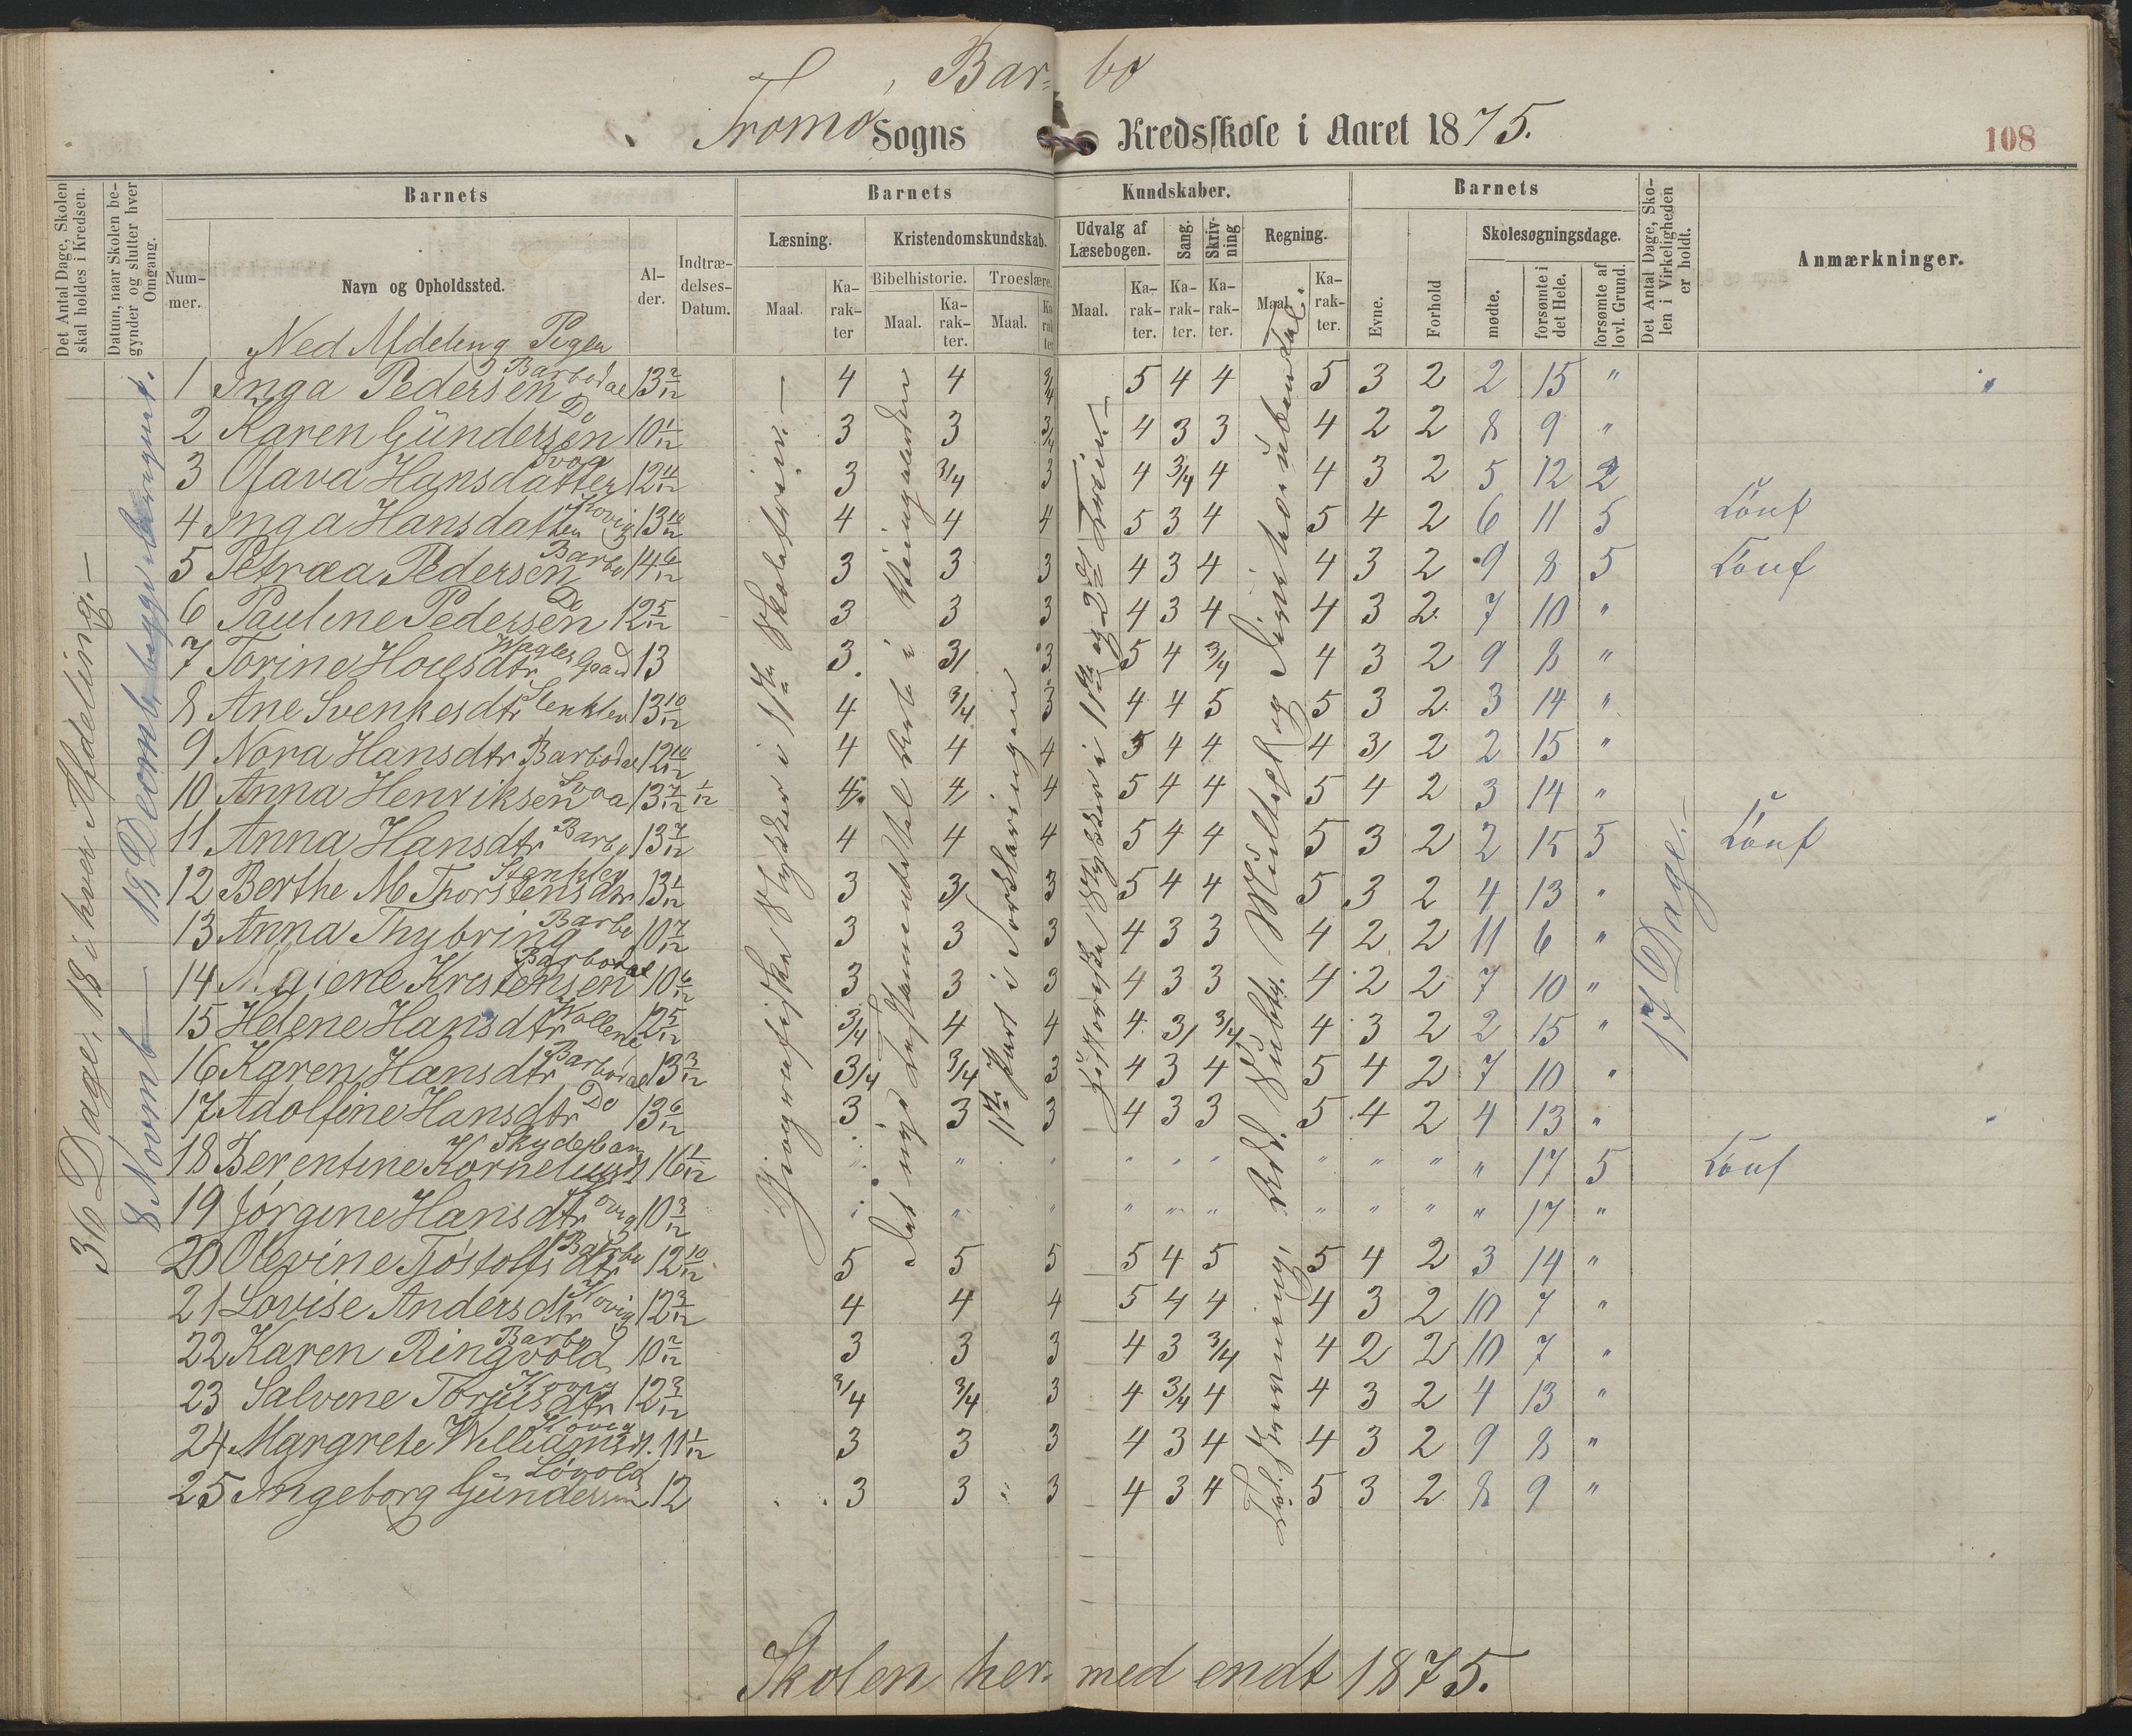 Barbo
Tromø Sogns Kredsskole i Aaret 1875.
108
Det Antal Dage, Skolen skal holdes i Kredsen.
Datum, naar Skolen begynder og slutter hver Omgang.
Barnets
Barnets Kundskaber.
Barnets
Det Antal Dage, Skolen i Virkeligheden er holdt.
Anmærkninger.
Nummer.
Navn og Opholdssted.
Alder.
Indtrædelses-Datum.
Læsning.
Kristendomskundskab.
Udvalg af Læsebogen.
Sang.
Skrivning
Regning.
Evne.
Forhold
Skolesøgningsdage.
Maal.
Karakter
Bibelhistorie.
Troeslære.
Maal.
Karakter.
Maal.
Karakter
Maal.
Karakter.
Karakter.
Karakter.
Maal.
Karakter.
mødte.
forsømte i det Hele.
forsømte af lovl. Grund.
Ned Afdeling Piger
36 Dage, 18 i hver Afdeling.—
8 Novmb — 18 Decmb begge iberegnet.
17 Dage.—
1 Inga Pedersen Barbodal 13 2/12 4 4 3/4 5 4 4 5 3 2 2 15 "
2 Karen Gündersen Do 10 1/12 3 3 3/4 4 3 3 4 2 2 8 9 "
3 Olava Hansdatter Svoa 12 4/12 3 3/4 3 4 3/4 4 4 3 2 5 12 2
4 Inga Hansdatter Kovig 13 10/12 4 4 4 5 3 4 5 4 2 6 11 5 Konf
5 Petræa Pedersen Barbo 14 6/12 3 3 3 4 3 4 4 3 2 9 8 5 Konf
6 Pauline Pedersen Do 12 5/12 3 3 3 4 3 4 4 3 2 7 10 "
7 Torine Hoiesdtr Wragles Gaard 13 3 3/ 3 5 4 3/4 4 3 2 9 8 "
8 Ane Svenkesdtr Stenklev 13 10/12 4 3/4 3 4 4 5 5 3 2 3 14 "
9 Nora Hansdtr Barbodal 12 10/12 4 4 4 5 4 4 4 3/ 2 2 15 "
10 Anna Henriksen Svoa 13 7/12 1/12 4 4 4 5 4 4 5 4 2 3 14 "
11 Anna Hansdtr Barbo 13 7/12 4 4 4 5 4 4 5 3 2 2 15 5 Konf
12 Berthe M Thorstensdtr Stenklev 13 1/12 3 3/ 3 5 4 4 5 3 2 4 13 "
13 Anna Thybring Barbo 10 7/12 3 3 3 4 3 3 4 2 2 11 6 "
14 Maiene Kristensen Barbodal 10 6/12 3 3 3 4 3 3 4 2 2 7 10 "
15 Helene Hansdtr Vollene 12 5/12 3/4 4 4 4 3/ 3/4 4 3 2 2 15 "
16 Karen Hansdtr Barbodal 13 3/12 3/4 3/4 3 4 3 4 5 4 2 7 10 "
17 Adolfine Hansdtr Do 13 6/12 3 3 3 4 3 3 5 4 2 4 13 "
18 Berentine Korneliusd Skydeban 16 1/12 " " " " " " " " " " 17 5 Konf
19 Jørgine Hansdtr Kovig 10 3/12 " " " " " " " " " " 17 "
20 Olevine Tjøstolfsdtr Barbo 12 10/12 5 5 5 5 4 5 5 4 2 3 14 "
21 Lovise Andersdtr Kovig 12 3/12 4 4 4 5 4 4 4 3 2 10 7 "
22 Karen Ringvold Barbo 10 2/12 3 3 3 4 3 3/4 4 2 2 10 7 "
23 Salvine Torjusdtr Kovig 12 3/12 3/4 3/4 3 4 3/4 4 4 3 2 4 13 "
24 Margrete Williamsd. Kovig 11 1/12 3 3 3 4 3 4 4 3 2 9 8 "
25 Ingeborg Gündersen Løvold 12 3 3 3 4 3 4 5 3 2 8 9 "
Geografiske Stykker i 1ste Skoletrin.—
Det nye Testamente
1ste Part i Forklaringen
Historiske Stykker i 1ste og 2det Trin.—
Skolen her med endt 1875.